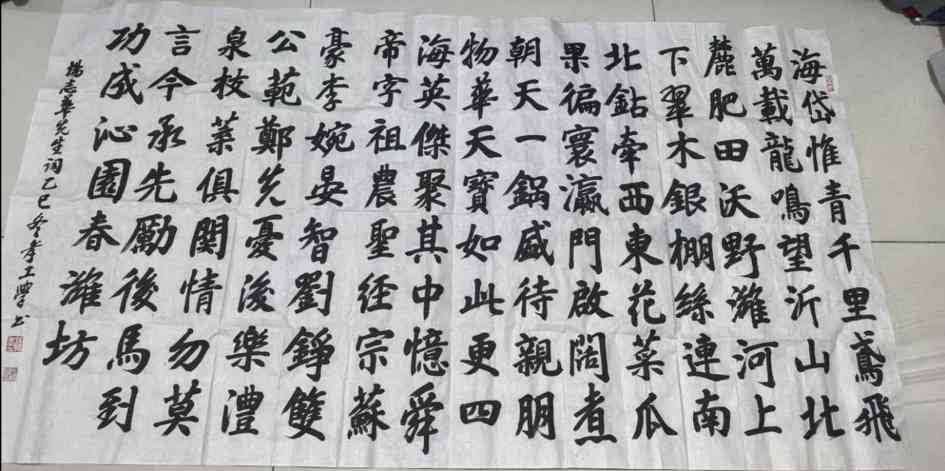 海岱惟青千里鳶飛
萬載龍鳴望沂山北
麓肥田沃野濰河上
下翠木銀棚絲連南
北鉆牽西東花菜瓜
果徧寰瀛門啟闊煮
朝天一鍋盛待親朋
物華天寶如此更四
海英傑聚其中憶舜
帝字祖農聖径宗蘇
豪李婉晏智劉錚雙
公範鄭先憂後樂澧
泉枝葉俱関情勿莫
言今承先勵後馬到
功成沁園春濰坊
楊志華先生詞乙巳冬